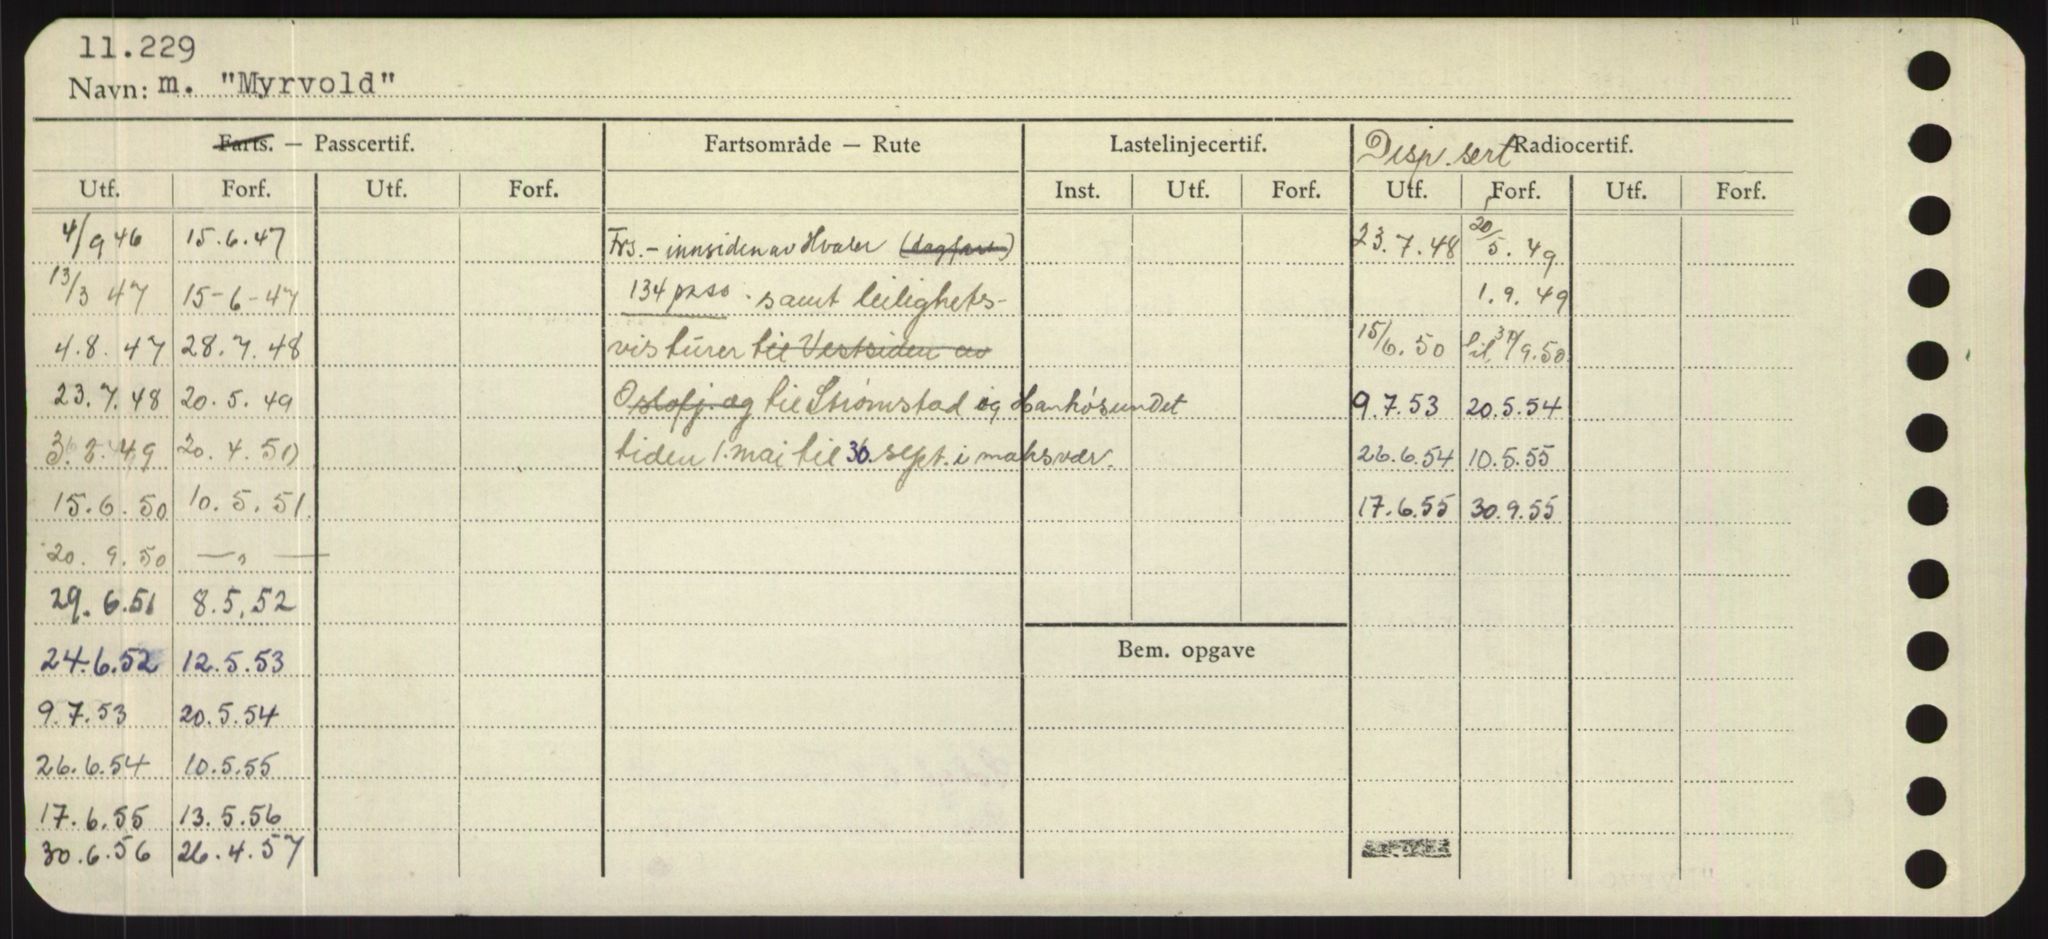 11.229
Navn: m. "Myrvold"
Farts. — Passcertif. Fartsområde — Rute Lastelinjecertif. Disp. sert Radiocertif.
Utf. Forf. Utf. Forf. Inst. Utf. Forf. Utf. Forf. Utf. Forf.
4/9 46 15.6.47 Frs. - innsiden av Hvaler (dagfart) 23.7.48 20/5.49
13/3 47 15-6-47 134 pass. samt leilighets- 1.9.49
4.8.47 28.7.48 vis turer til Vestsiden av 15/6.50 til 9.50
23.7.48 20.5.49 Oslofj. og til Strømstad og Hankøsundet 9.7.53 20.5.54
49 20.4.50 tiden 1. mai til 30. sept. i 26.6.54 10.5.55
15.6.50 10.5.51. 17.6.55 30.9.55
20.9.50 — " —
29.6.51 8.5.52
24.6.52 12.5.53 Bem. opgave
9.7.53 20.5.54
26.6.54 10.5.55
17.6.55 13.5.56
30.6.56 26.4.57